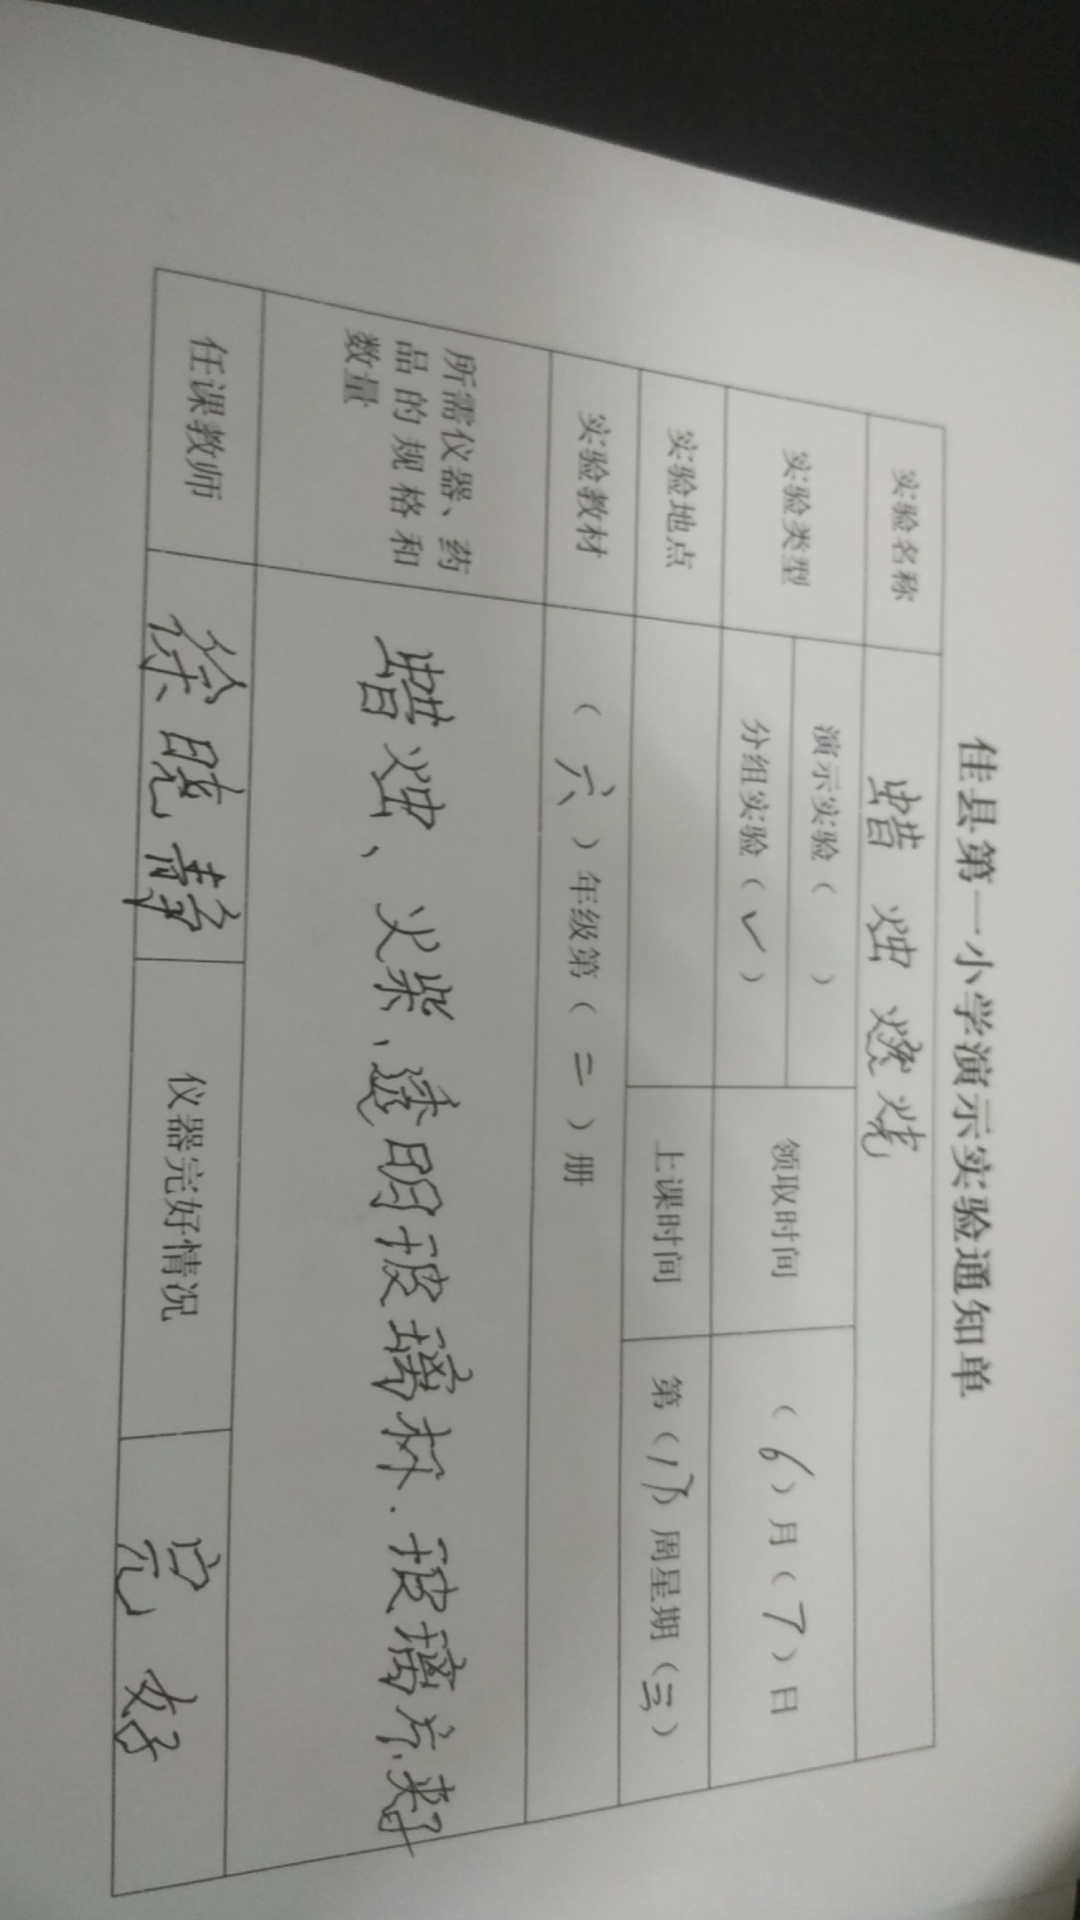 佳县第一小学演示实验通知单
实验名称 蜡烛燃烧
实验类型 演示实验（ ） 分组实验（✓） 领取时间 （6）月（7）日
实验地点 上课时间 第（17）周星期（三）
实验教材 （六）年级第（二）册
所需仪器、药
品的规格和
数量
蜡烛、火柴、透明玻璃杯、玻璃片、
任课教师 徐晓静 仪器完好情况 完好